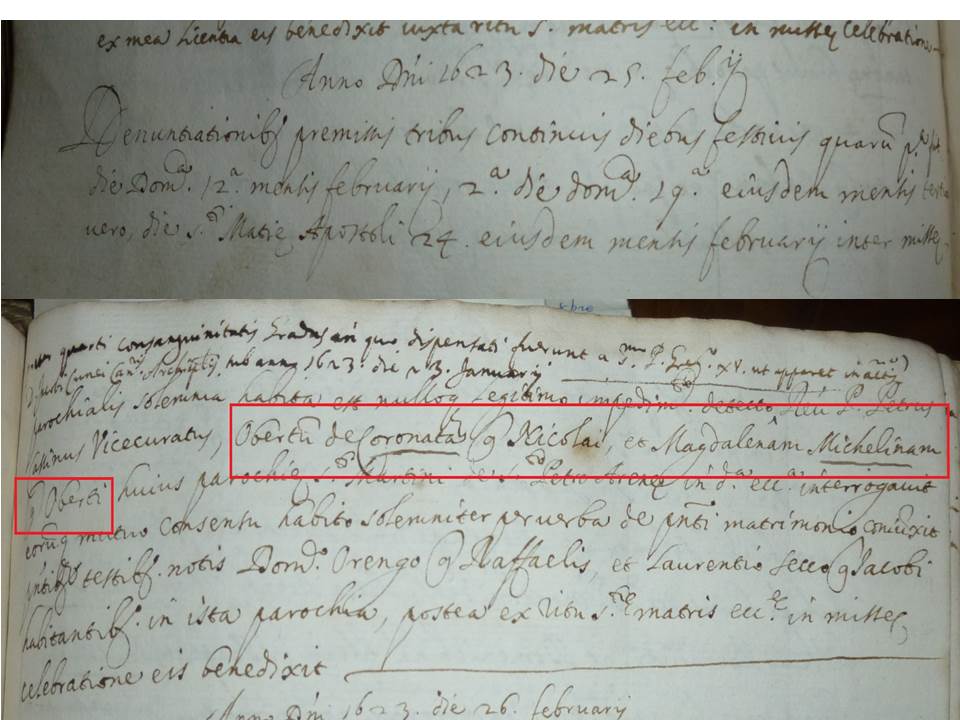 ex mea licentia eis benedixit iuxta ritu S. matris ecc. in missę celebratione
Anno Dñi 1623. die 25. feb.ij
Denuntiationib; premissis tribus continuis diebus festiuis quarū p.a
die Dom.a 12.a mensis februarij, 2.a die dom.a 19.a eiusdem mensis tertia
uero, die S.ti Matię Apostoli 24. eiusdem mensis februarij inter missę
quarti consanguinitatis Gradus in quo dispensati fuerunt a S.mo P. Greg.o XV. ut apparet in
sub anno 1623. die 23. Januarij
parochialis solemnia habita est nulloq; legitimo impedim.to detecto P. Petrus
Vicecuratus, Obertū de Coronata q Nicolai, et Magdalenam Michelinam
q Oberti huius parochię S.ti Martini de S.to Petro Arenę in d.a ecc. interrogauit
eorūq; mutuo consensu habito solemniter per uerba de pñti matrimonio coniūxit
pñtib; testib; notis Dom.o Orengo q Raffaelis, et Laurentio Secco q Jacobi
habitantib; in ista parochia, postea ex ritu S.tę matris ecc.ę in missę
celebratione eis benedixit
Anno Dñi 1623. die 26. februarij